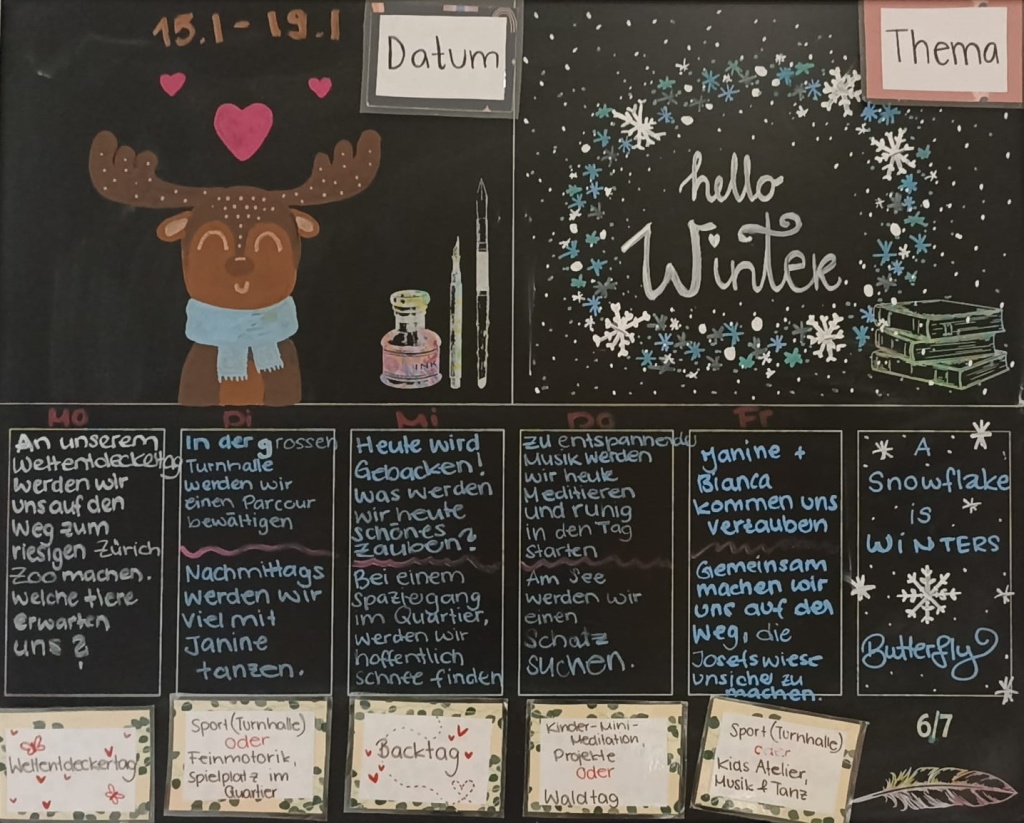 15.1 - 19.1
Datum
Thema
hello
Winter
INK
Mo
An unserem
Weltentdeckertag
werden wir
uns auf den
Weg zum
riesigen Zürich
Zoo machen.
welche tiere
erwarten
uns?
Di
In der grossen
Turnhalle
werden wir
einen Parcour
bewältigen
Nachmittags
werden wir
viel mit
Janine
tanzen.
Mi
Heute wird
Gebacken!
was werden
wir heute
schönes
zauben?
Bei einem
Spaziegang
im Quartier,
werden wir
hoffentlich
schnee finden
Do
zu entspannende
Musik werden
wir heute
Meditieren
und runig
in den Tag
starten
Am See
werden wir
einen
Schatz
suchen.
Fr
Janine +
Bianca
kommen uns
verzaubern
Gemeinsam
machen wir
uns auf den
weg, die
Josefswiese
unsiche zu
machen.
A
Snowflake
is
WINTERS
Butterfly
Weltentdeckertag
Sport (Turnhalle)
oder
Feinmotorik,
Spielplatz im
Quartier
Backtag
Kinder-Mini-
Meditation
Projekte
oder
Waldtag
Sport (Turnhalle)
oder
Kids Atelier,
Musik & Tanz
6/7